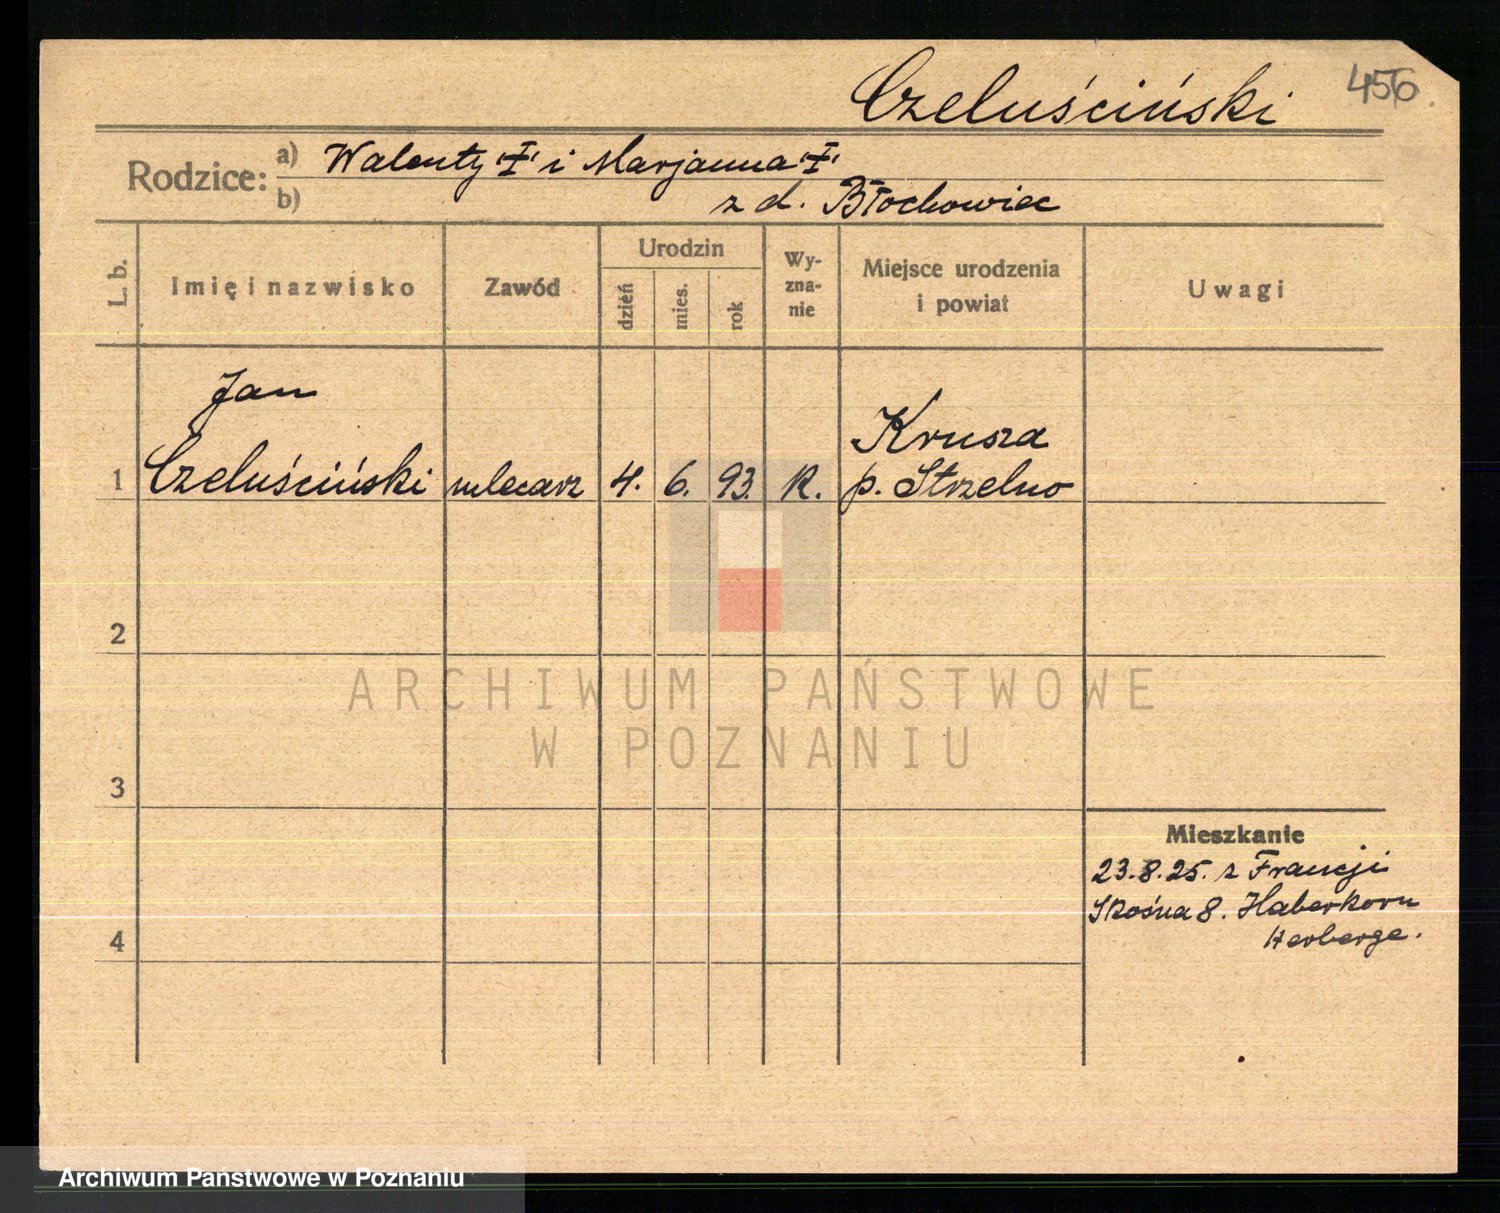 Czeluściński
456.
Rodzice:
a) Walenty '‡' i Marjanna '‡'
b) z d. Błochowiec
L. b.
Imię i nazwisko
Zawód
Urodzin
dzień
mies.
rok
Wy-
zna-
nie
Miejsce urodzenia
i powiat
Uwagi
Jan
Krusza
1 Czeluściński mlecarz 4. 6. 93. R. p. Strzelno
2
3
4
Mieszkanie
23.8.25. z Francji
Skośna 8. Haberkorn
Herberge.
ARCHIWUM PAŃSTWOWE
W POZNANIU
Archiwum Państwowe w Poznaniu